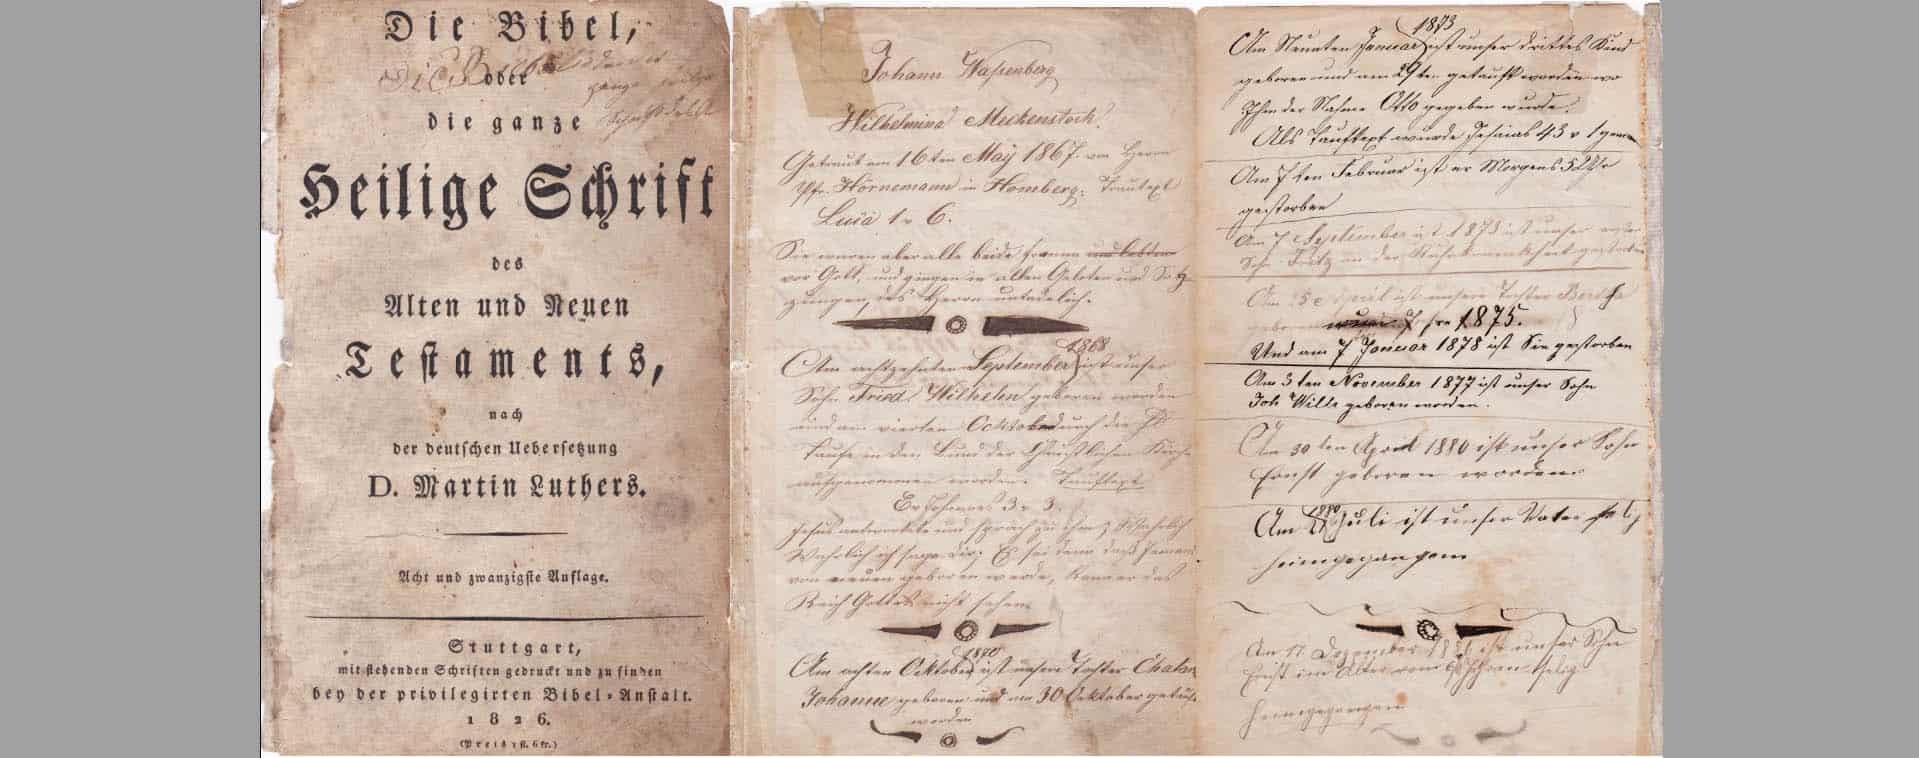 Die Bibel,
oder
die ganze
Heilige Schrift
des
Alten und Neuen
Testaments,
nach
der deutschen Uebersetzung
D. Martin Luthers.
Acht und zwanzigste Auflage.
Stuttgart,
mit stehenden Schriften gedruckt und zu finden
bey der privilegirten Bibel-Anstalt.
1826.
(Preis 1 fl. 6 kr.)
Johann Waßenberg
Wilhelmina Meckenstock.
Getraut am 16ten May 1867. von Herrn
Pfr. Hörnemann in Homberg. Trautext
Lucä 1 v 6.
Sie waren aber alle beide fromm
vor Gott, und gingen in allen Geboten und Satz
zungen, des Herrn untadelich.
1868
Am achtzehnten September ist unser
Sohn Fried. Wilhelm geboren worden
und am vierten October durch die Hl
Taufe in den Bund der Christlichen Kirche
aufgenommen worden. Tauftext
Ev Johannes 3 v 3.
Jesus antwortete und sprach zu ihm; Wahrlich
Wahrlich ich sage Dir; Es sei denn daß Jemand
von neuen geboren werde, kann er das
Reich Gottes nicht sehen
1870
Am achten Ocktober ist unsere Tochter
Johanne geboren und am 30 Ocktober getauft
worden
1873
Am Neunten Januar ist unser drittes Kind
geboren und am 29ten getauft worden wo
Ihm der Nahme Otto gegeben wurde.
Als Tauftext wurde Jesaias 43 v 1
Am 7ten Februar ist er Morgens 5 Uhr
gestorben
Am 7 September 1873 ist unser
Sohn Fritz an der gestorben
Am April ist unsere Tochter Bertha
1875.
Und am 7 Januar 1878 ist Sie gestorben
Am 3ten November 1877 ist unser Sohn
Joh Wilh geboren worden.
Am 30ten April 1880 ist unser Sohn
Ernst geboren worden
1880
Am Juli ist unser Vater selig
heimgegangen
Am 11 Dezember ist unser Sohn
Ernst im Alter von Jahren selig
heimgegangen